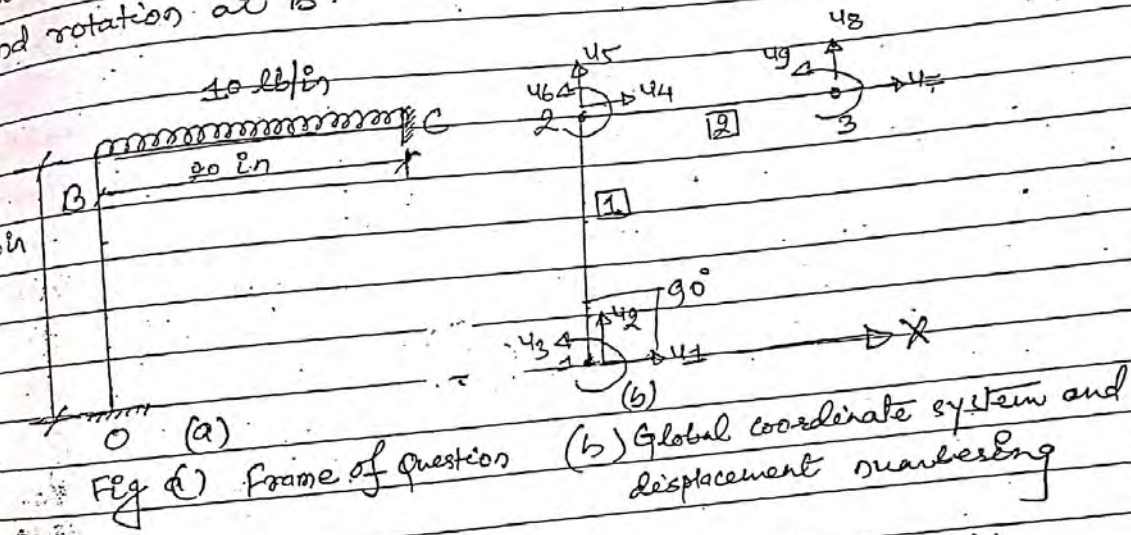 nd rotation at B.
10 lb/in
C
20 in
B
in
O
(a)
u5
u6
u4
2
1
90°
u2
u3
1
u1
X
(b)
u8
u9
u7
2
3
Fig (1) Frame of Question
(b) Global coordinate system and
displacement numbering